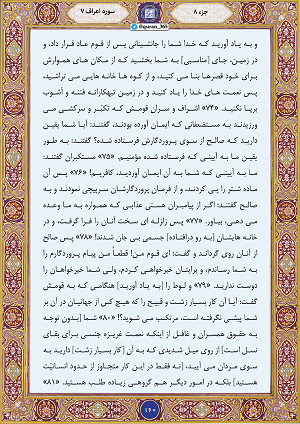 جزء ۸
@quran_365
سوره اعراف ۷
و به یاد آورید که خدا شما را جانشینانی پس از قوم عاد قرار داد، و
در زمین، جای [مناسبی] به شما بخشید که از مکان های هموارش
برای خود قصرها بنا می کنید، و از کوه ها خانه هایی می تراشید،
پس نعمت های خدا را یاد کنید و در زمین تبهکارانه فتنه و آشوب
برپا نکنید. «۷۴» اشراف و سران قومش که تکبّر و سرکشی می
ورزیدند به مستضعفانی که ایمان آورده بودند، گفتند: آیا شما یقین
دارید که صالح از سوی پروردگارش فرستاده شده؟ گفتند: به طور
یقین ما به آیینی که فرستاده شده مؤمنیم. «۷۵» مستکبران گفتند:
ما به آیینی که شما به آن ایمان آوردید، کافریم! «۷۶» پس آن
ماده شتر را پی کردند، و از فرمان پروردگارشان سرپیچی نمودند و به
صالح گفتند: اگر از پیامبران هستی عذابی که همواره به ما وعده
می دهی، بیاور. «۷۷» پس زلزله ای سخت آنان را فرا گرفت، و در
خانه هایشان [به رو درافتاده] جسمی بی جان شدند! «۷۸» پس صالح
از آنان روی گرداند و گفت: ای قوم من! قطعاً من پیام پروردگارم را
به شما رساندم، و برایتان خیرخواهی کردم، ولی شما خیرخواهان را
دوست ندارید. «۷۹» و لوط را [به یاد آورید] هنگامی که به قومش
گفت: آیا آن کار بسیار زشت و قبیح را که هیچ کس از جهانیان در آن بر
شما پیشی نگرفته است، مرتکب می شوید؟! «۸۰» شما [بدون توجه
به حقوق همسران و غافل از اینکه نعمت غریزه جنسی برای بقای
نسل است] از روی میل شدیدی که به آن [کار بسیار زشت] دارید به
سوی مردان می آیید، [نه فقط در این کار متجاوز از حدود انسانیّت
هستید] بلکه در امور دیگر هم گروهی زیاده طلب هستید. «۸۱»
۱۶۰